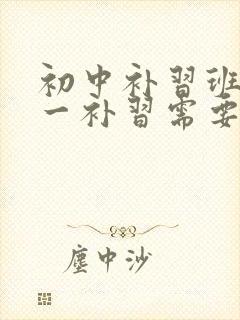 初中补习班
一补习需要
塵中沙